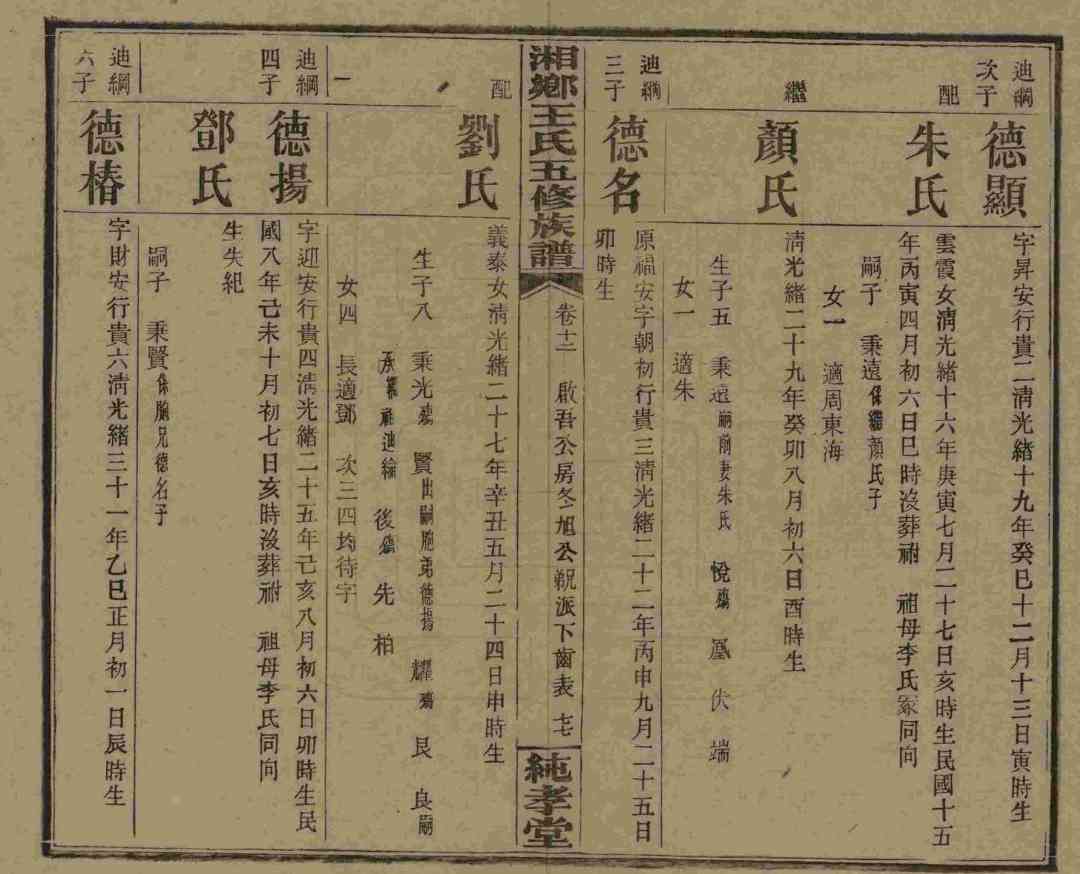 迪綱
次子
德顯
字昇安行貴二淸光緒十九年癸巳十二月十三日寅時生
配
朱氏
雲霞女淸光緒十六年庚寅七月二十七日亥時生民國十五
年丙寅四月初六日巳時沒葬祔 祖母李氏冢同向
嗣子 秉遠係繼顏氏子
女一 適周東海
繼
顏氏
淸光緒二十九年癸卯八月初六日酉時生
生子五 秉遠嗣前妻朱氏 悅殤 鳳 伏 端
女一 適朱
迪綱
三子
德名
原福安字朝初行貴三淸光緒二十二年丙申九月二十五日
卯時生
湘鄉王氏五修族譜
卷十二 啟吾公房冬旭公派下齒表
純孝堂
配
劉氏
義泰女淸光緒二十七年辛丑五月二十四日申時生
生子八 秉光殤 賢出嗣胞弟德揚 耀殤 艮 良嗣
承繼祖迪綸 後殤 先 柏
女四 長適鄧 次三四均待字
迪綱
四子
德揚
字迎安行貴四淸光緒二十五年己亥八月初六日卯時生民
國八年己未十月初七日亥時沒葬祔 祖母李氏同向
鄧氏
生失紀
嗣子 秉賢係胞兄德名子
迪綱
六子
德椿
字財安行貴六淸光緒三十一年乙巳正月初一日辰時生